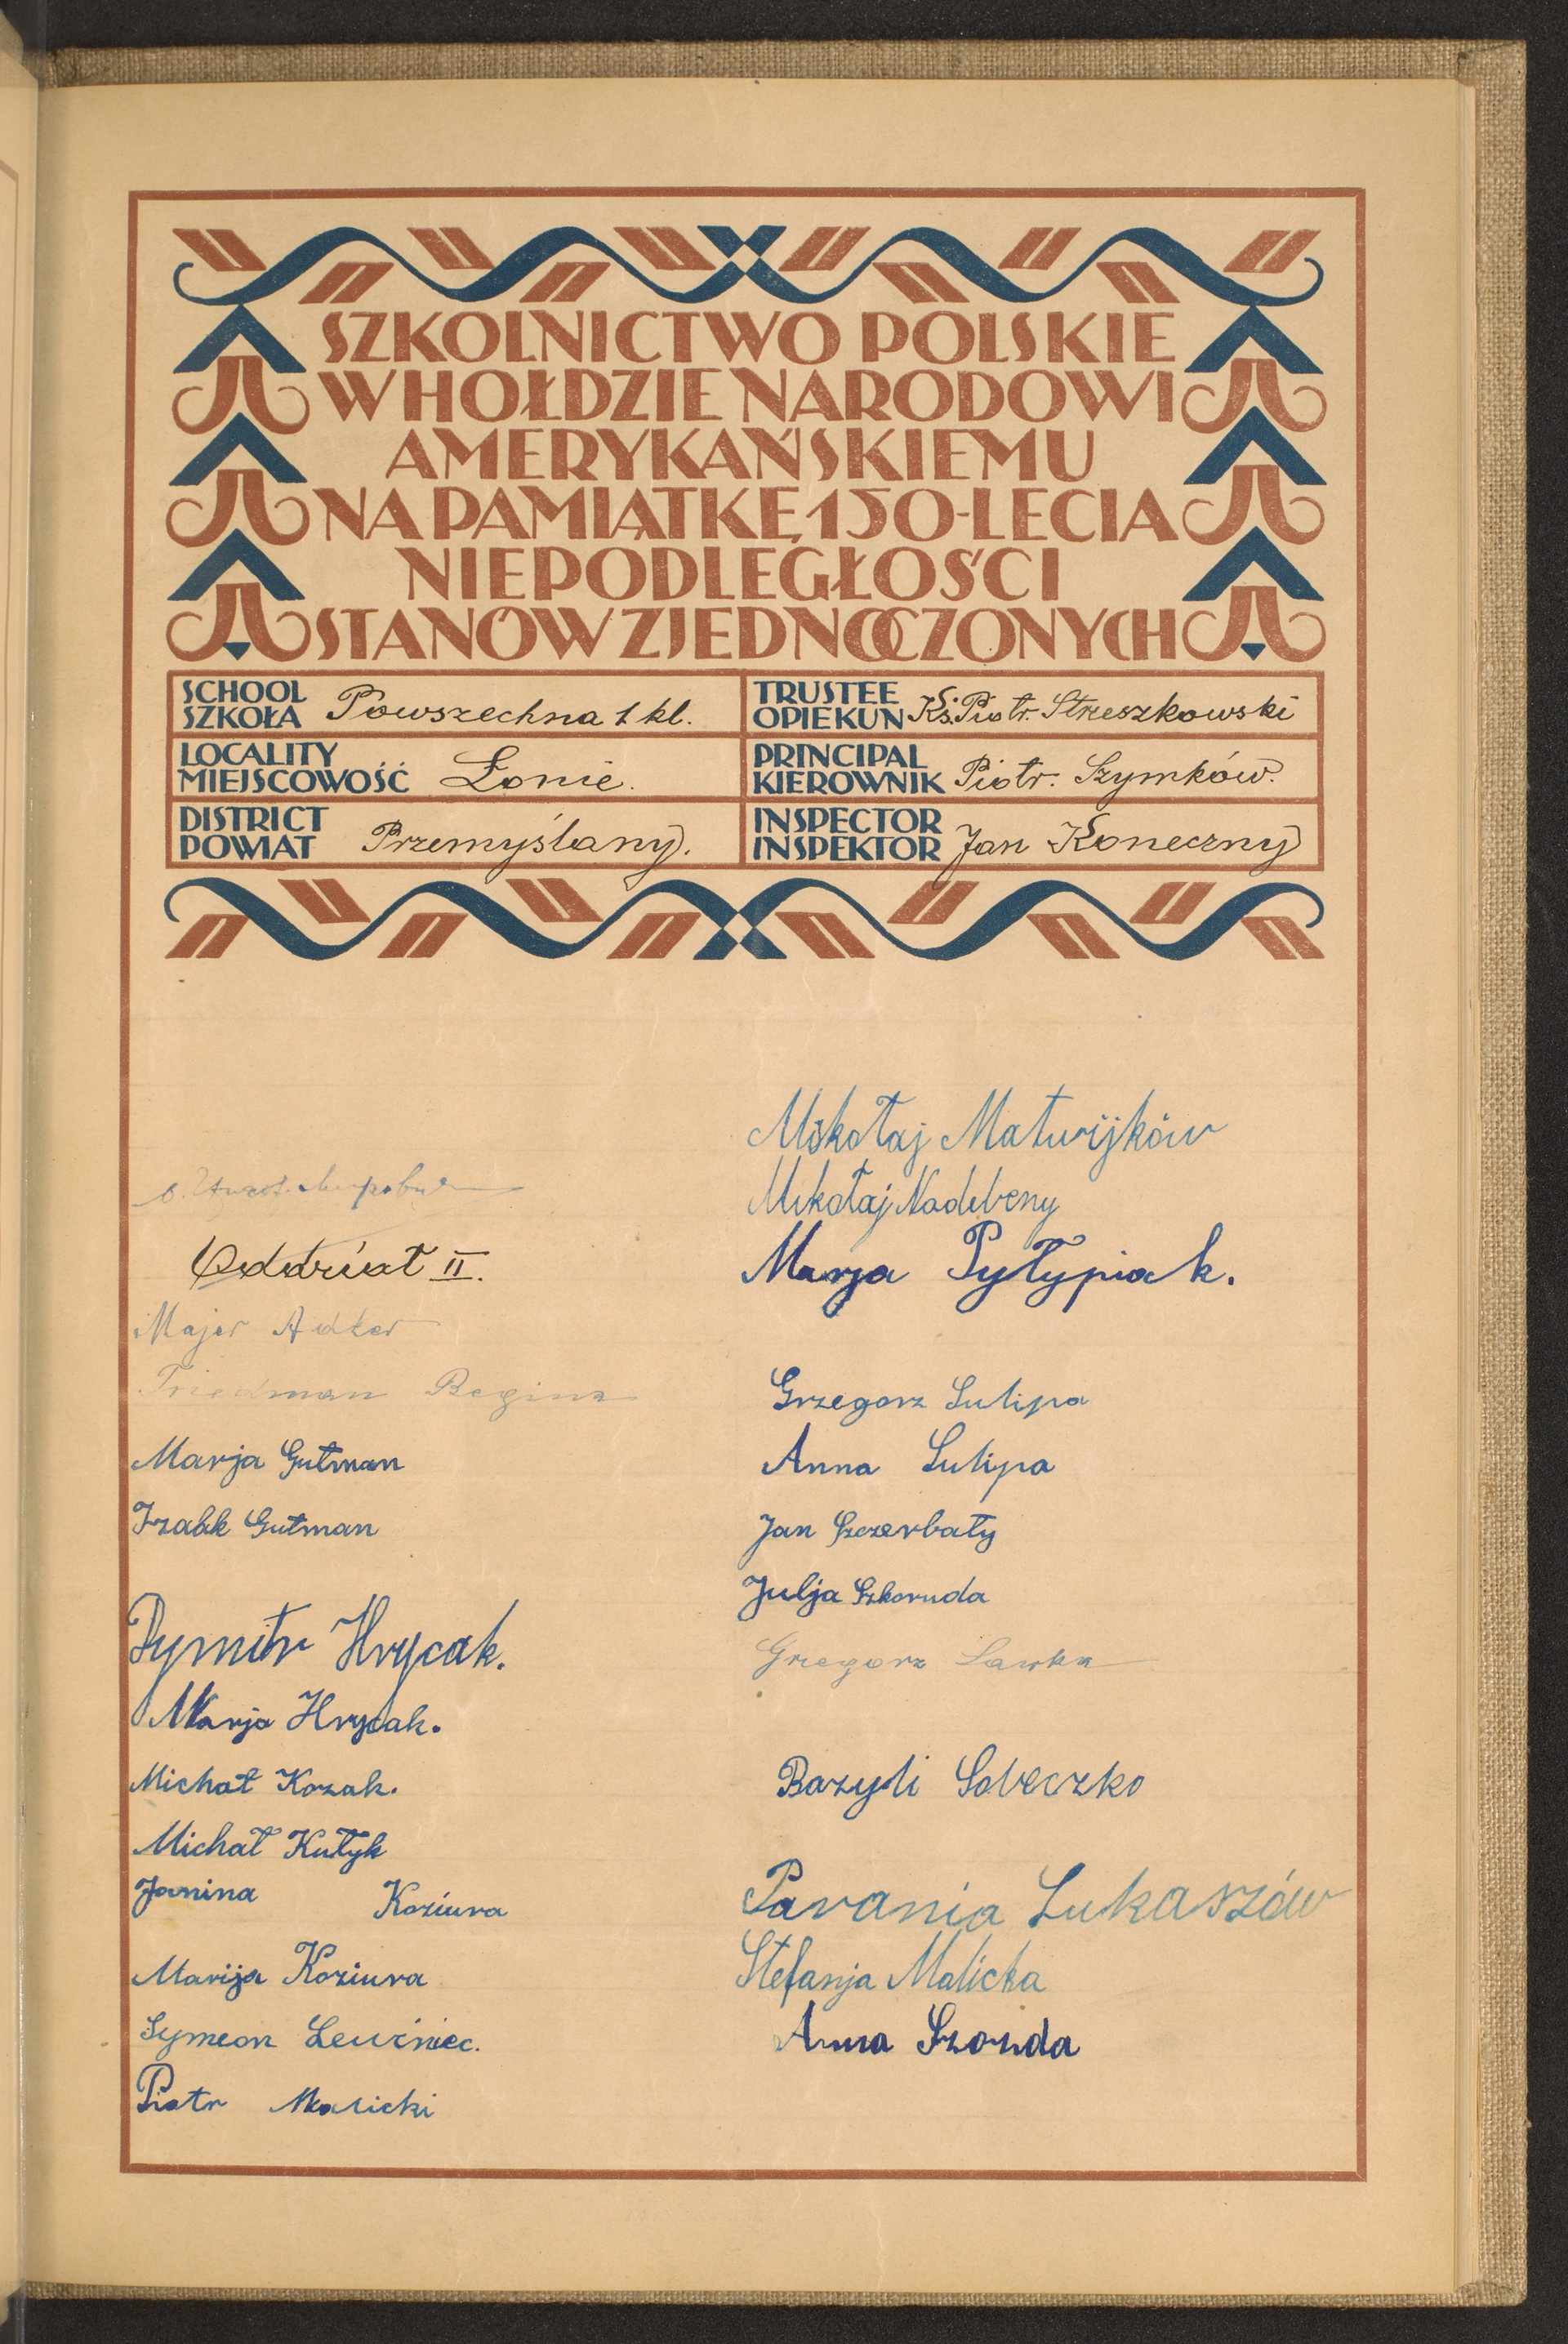 SZKOLNICTWO POLSKIE
W HOŁDZIE NARODOWI
AMERYKAŃSKIEMU
NA PAMIĄTKĘ 150-LECIA
NIEPODLEGŁOŚCI
STANÓW ZJEDNOCZONYCH
SCHOOL
SZKOŁA Powszechna 1 kl.
TRUSTEE
OPIEKUN Ks. Piotr Streszkowski
LOCALITY
MIEJSCOWOŚĆ Łonie.
PRINCIPAL
KIEROWNIK Piotr Szymków.
DISTRICT
POWIAT Przemyślany.
INSPECTOR
INSPEKTOR Jan Koneczny
Oddział II.
Majer Adler
Friedman Regina
Marja Gutman
Izaak Gutman
Dymitr Hrycak.
Marja Hrycak.
Michał Kozak.
Michał Kutyk
Janina Koziura
Marija Koziura
Symeon Lewiniec.
Piotr Malicki
Mikołaj Matwijków
Mikołaj Nadebeny
Marja Pyłypiak.
Grzegorz Sulipa
Anna Sulipa
Jan Szczerbaty
Julja Szkoruda
Grzegorz Sawka
Bazyli Sobeczko
Parania Łukaszów
Stefanja Malicka
Anna Szozda